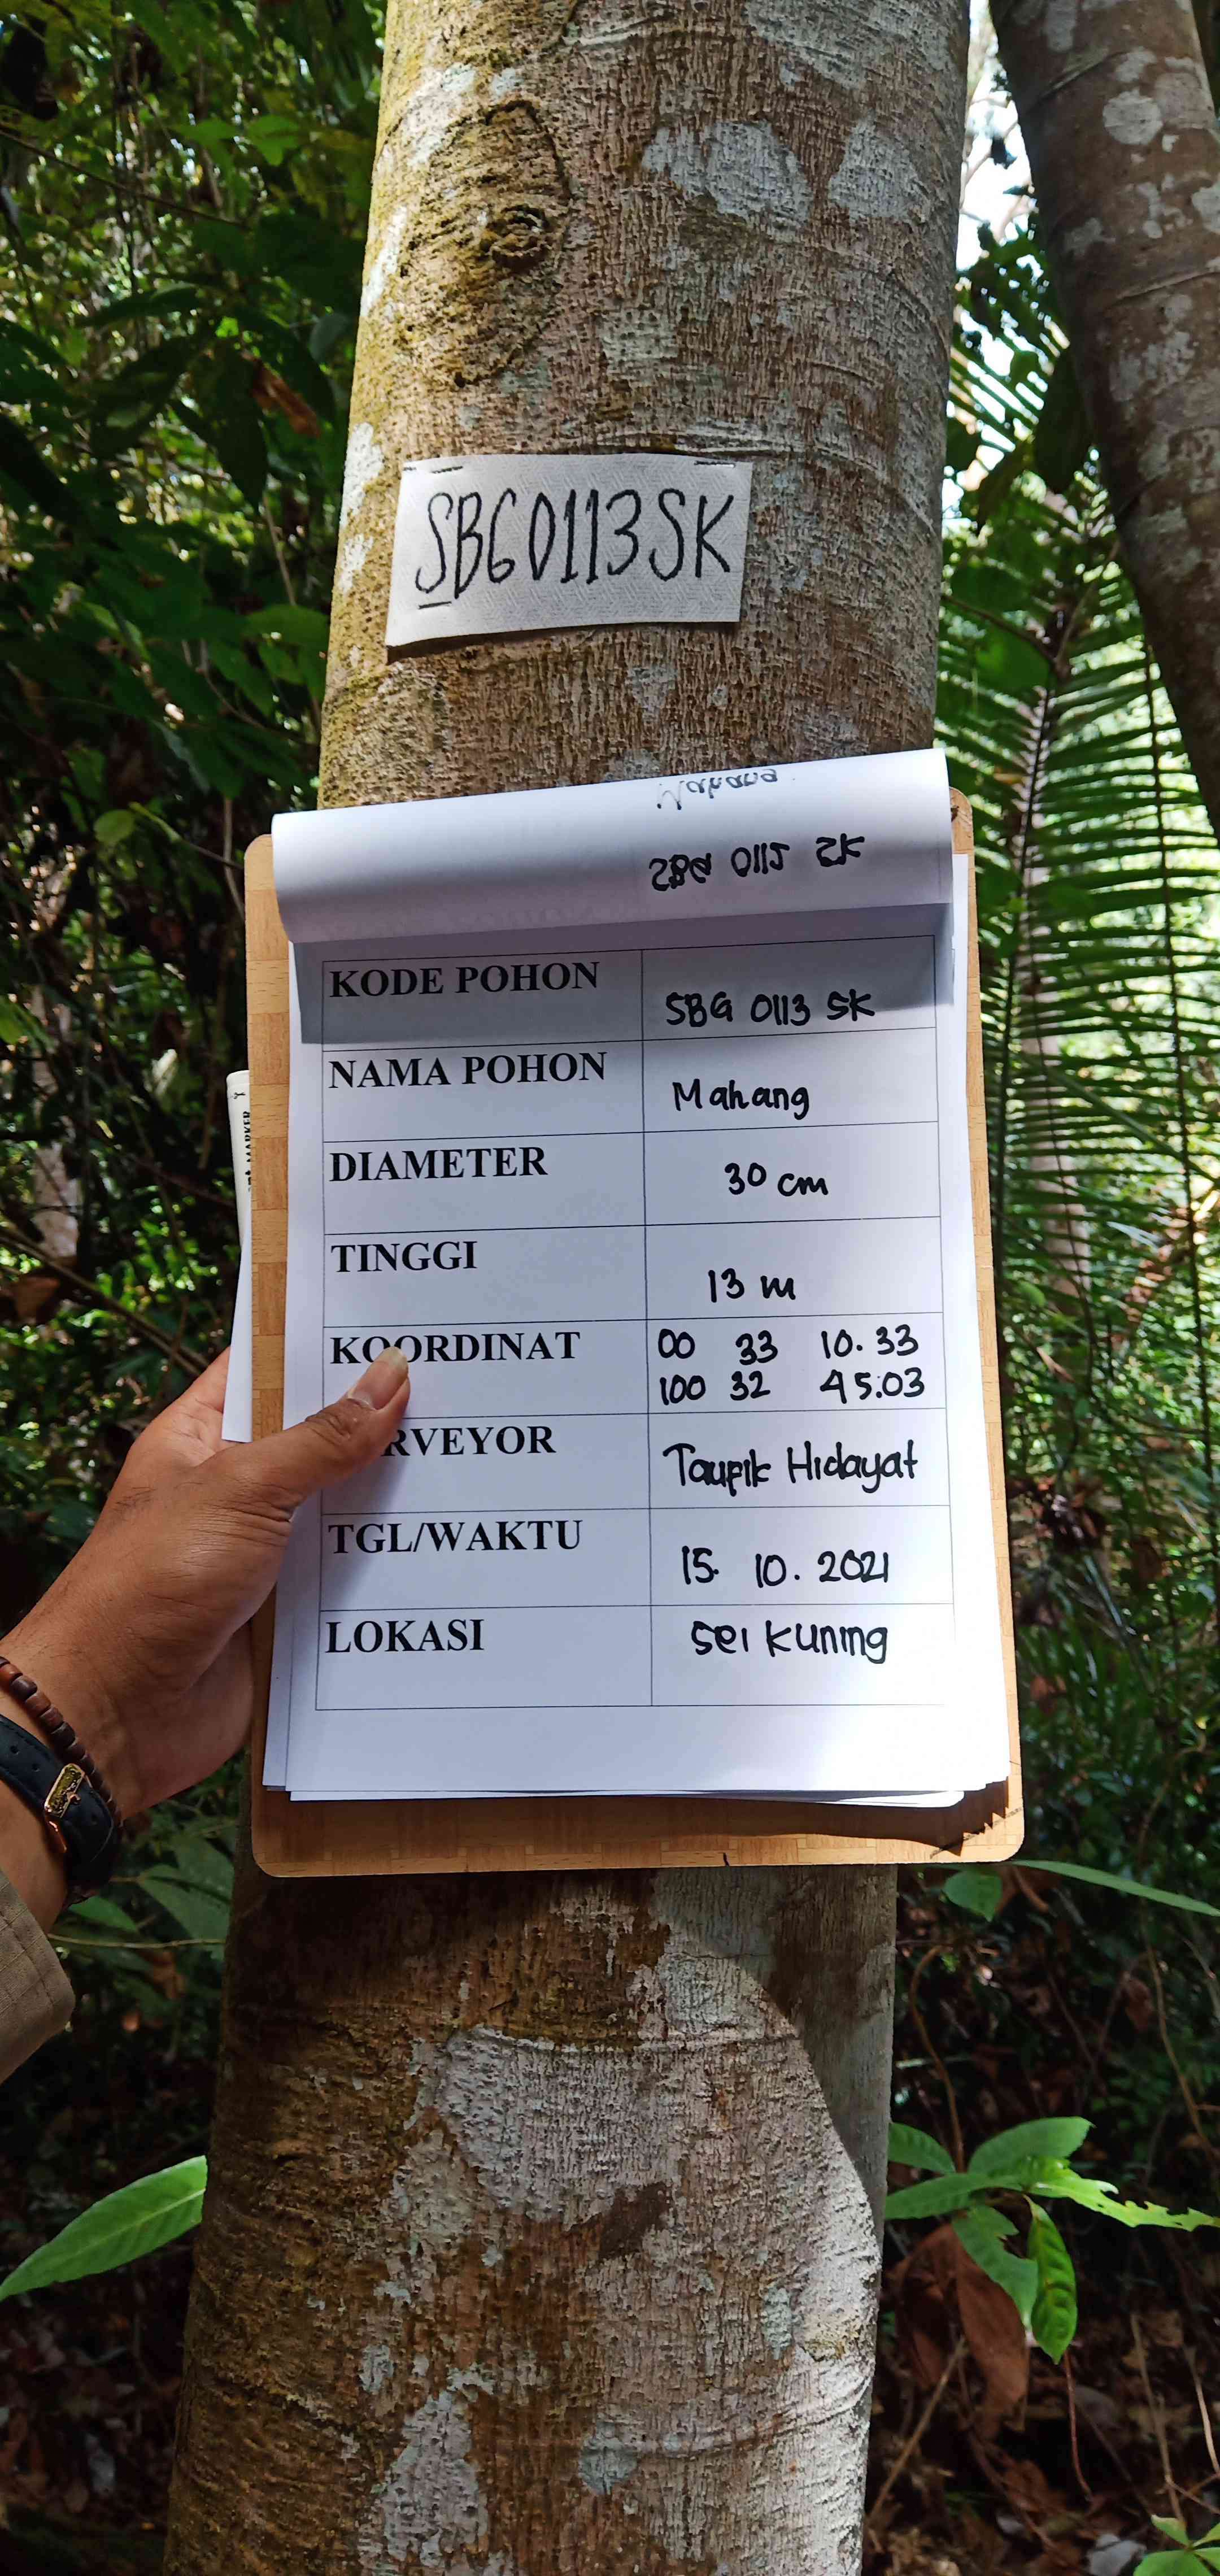 SBG0113SK
Mahang
SBG 0112 SK
KODE POHON SBG 0113 SK
NAMA POHON Mahang
DIAMETER 30 cm
TINGGI 13 m
KOORDINAT 00 33 10.33
100 32 45.03
RVEYOR Taupik Hidayat
TGL/WAKTU 15. 10. 2021
LOKASI Sei Kuning
MARKER